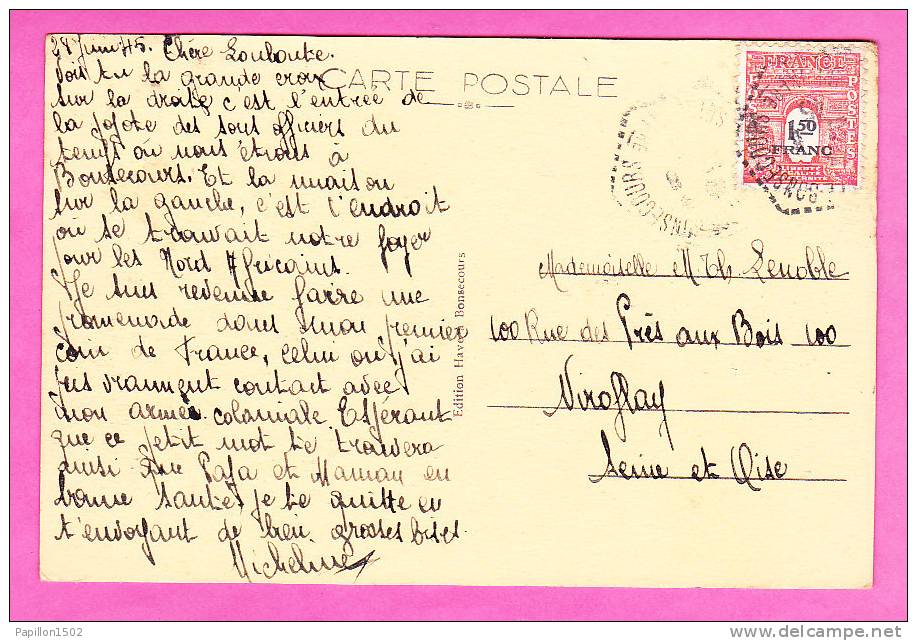 28 Juin 45. Chère Louloute.
Vois tu la grande croix
sur la droite c'est l'entrée de
la popote des sous officiers du
temps où nous étions à
Bonsecours. Et la maison
sur la gauche, c'est l'endroit
où se trouvait notre foyer
pour les Nord Africains.
Je suis revenue faire une
promenade dans mon premier
coin de France, celui où j'ai
pris vraiment contact avec
mon armée coloniale. Espérant
que ce petit mot te trouvera
ainsi que Papa et Maman en
bonne santé, je te quitte en
t'envoyant de bien grosses bises
Micheline
CARTE POSTALE
Edition Havé Bonsecours
FRANCE
POSTES
1F50
FRANC
LIBERTÉ
ÉGALITÉ
FRATERNITÉ
BONSECOURS
Mademoiselle M. Th. Lenoble
100 Rue des Prés aux Bois 100
Viroflay
Seine et Oise
Papillon1502
delcampe.net